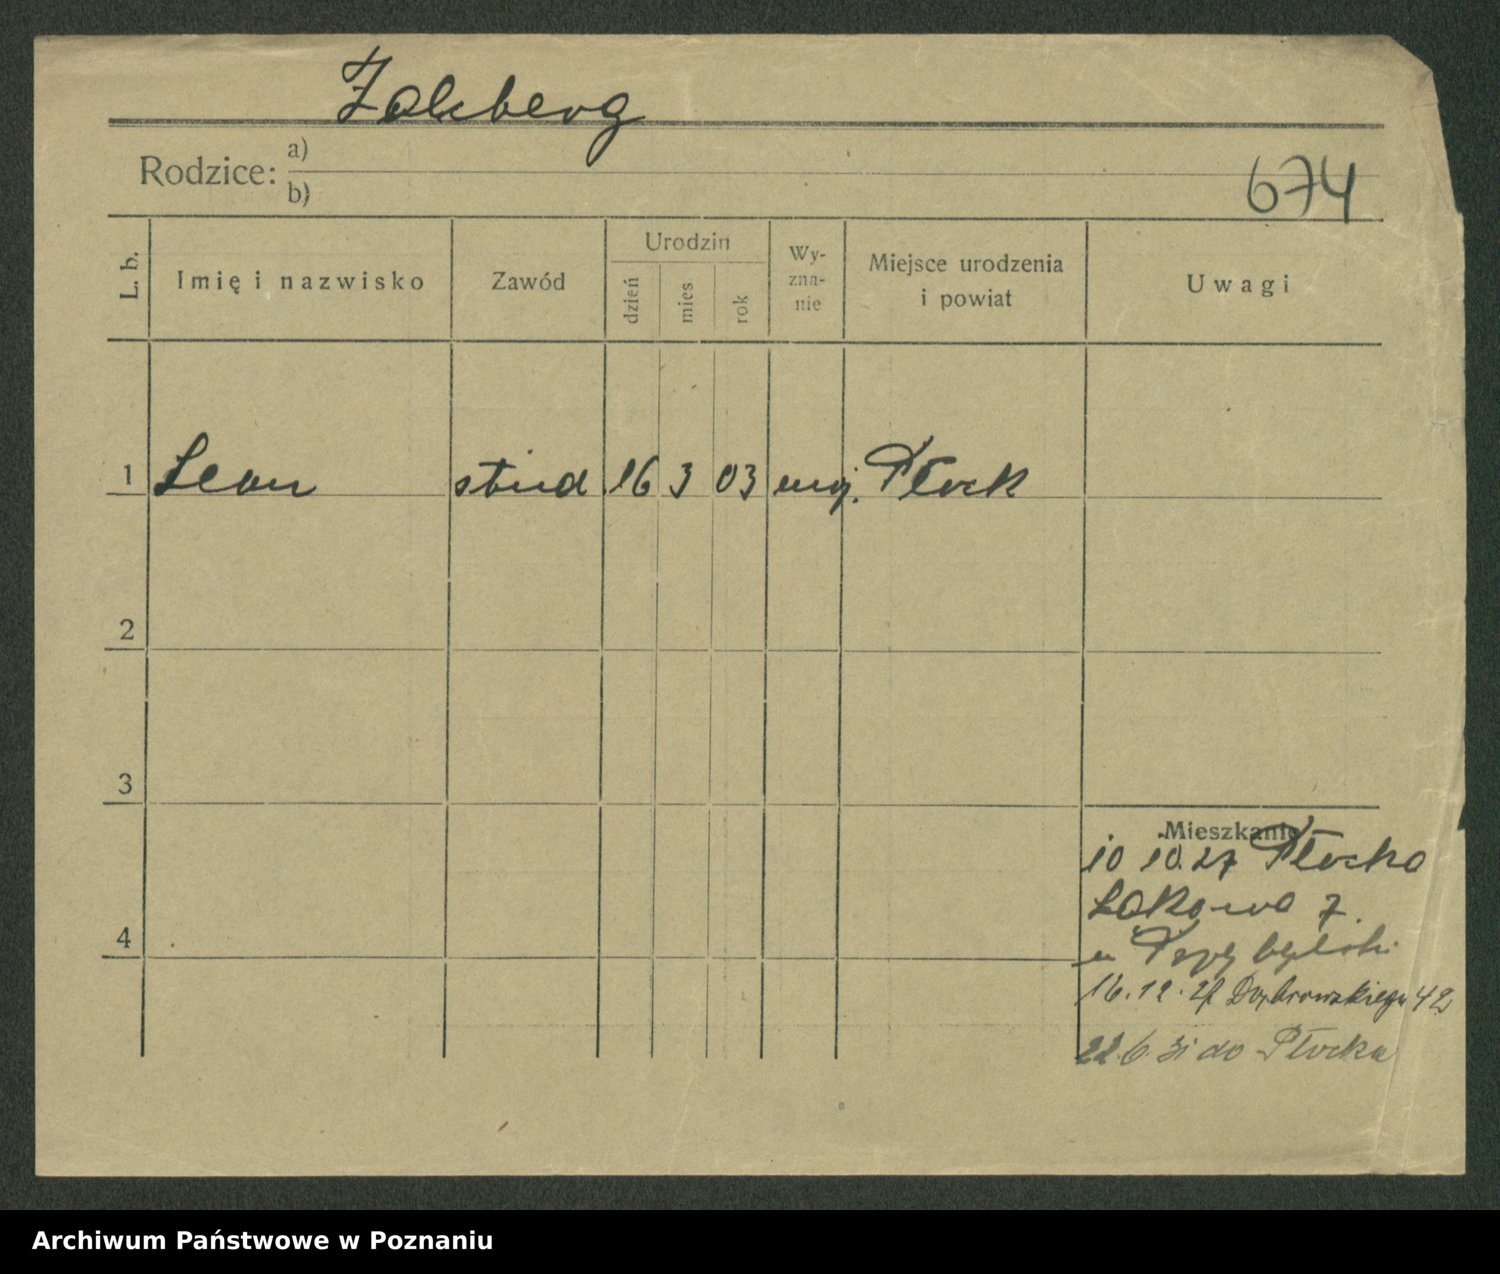 Zalcberg
Rodzice: a)
b)
674
L. b.
Imię i nazwisko
Zawód
Urodzin
dzień
mies
rok
Wy-
zna-
nie
Miejsce urodzenia
i powiat
Uwagi
1 Leon stud 16 3 03 moj. Płock
2
3
4
Mieszkanie
10 10.27 Płocka
Łąkowa 7.
u Przybylski
16.12.27 Dąbrowskiego 42
22.6.31 do Płocka
Archiwum Państwowe w Poznaniu